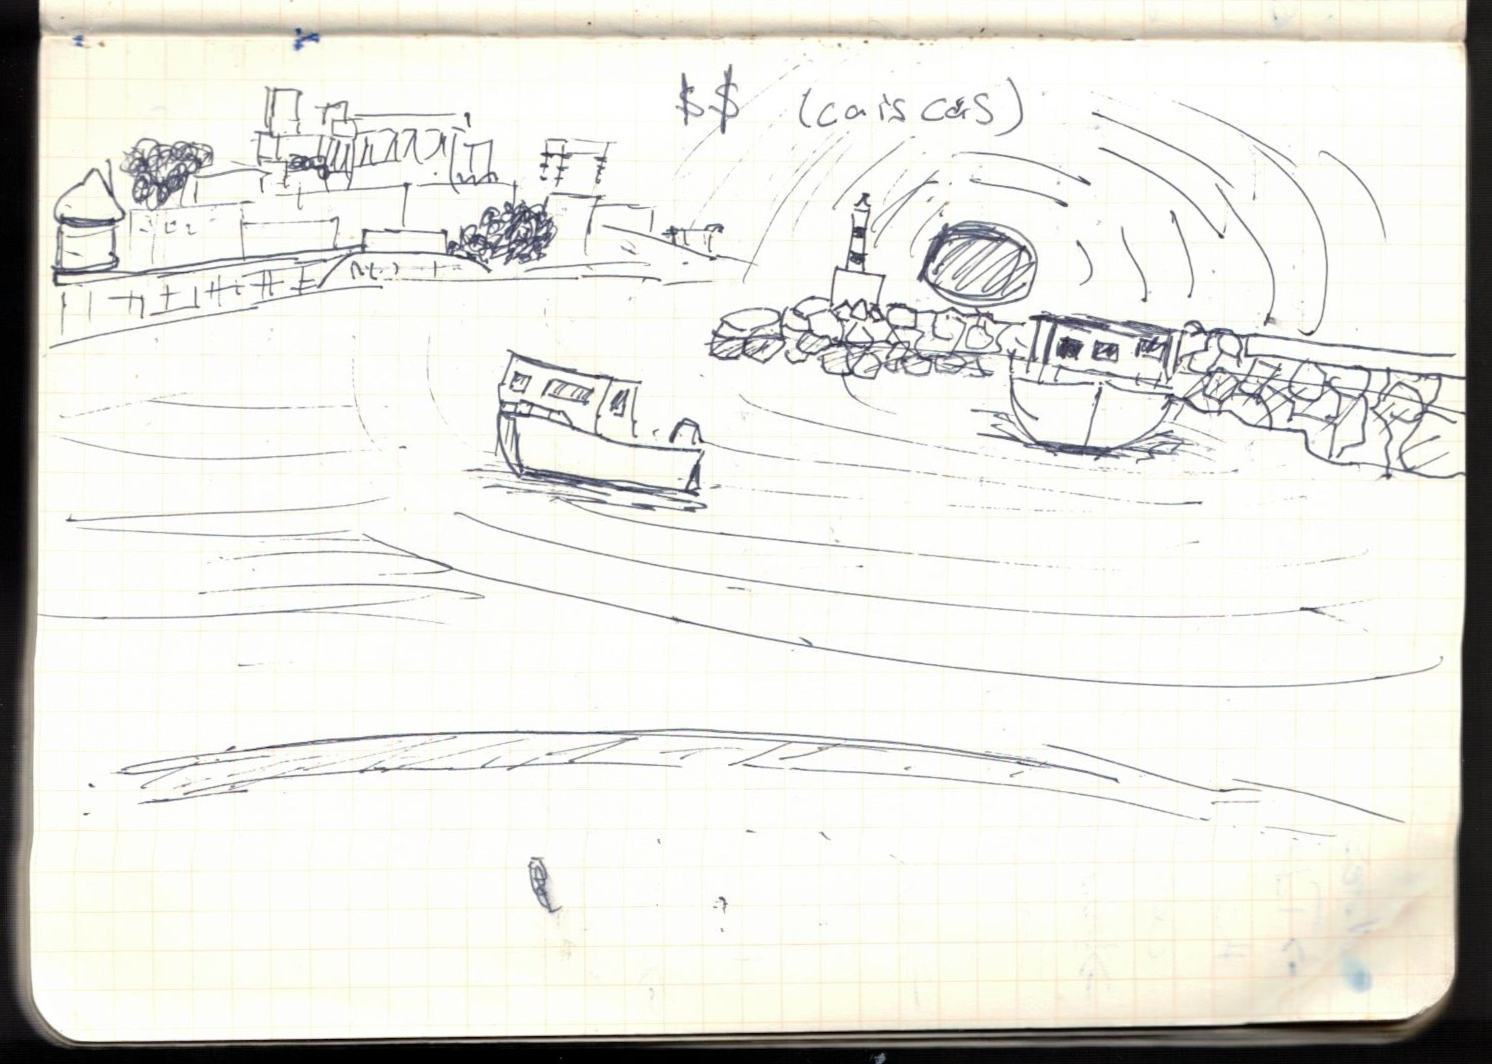 $$ (caiscais)